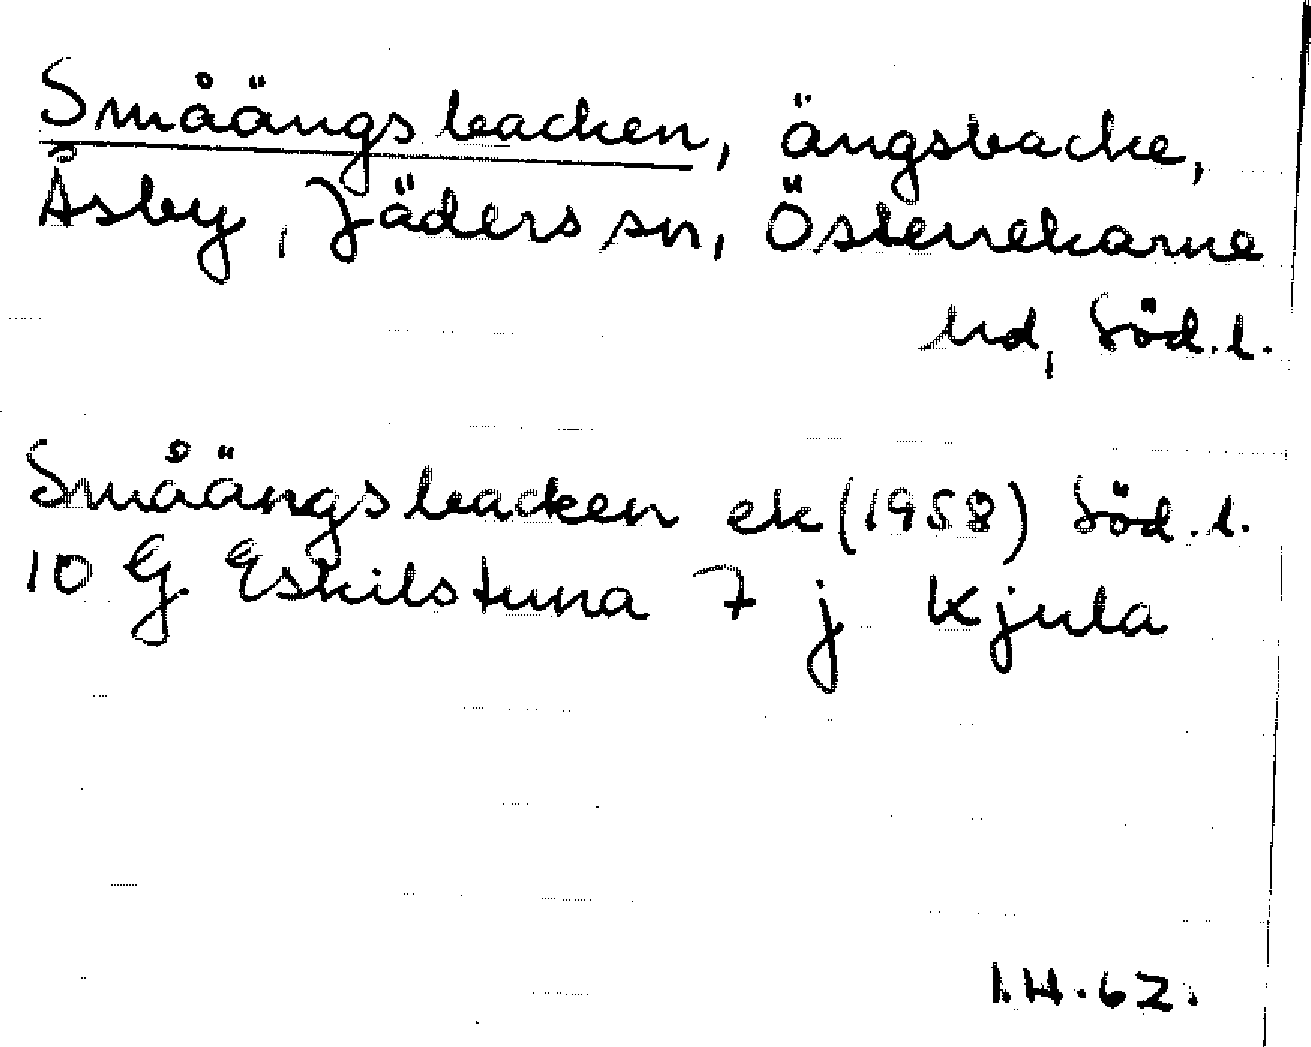 Småängsbacken, ängsbacke,
Åsby, Jäders sn, Österrekarne
hd, Söd.l.
Småängsbacken ek (1958) Söd.l.
10 G Eskilstuna 7 j Kjula
I.H.62.